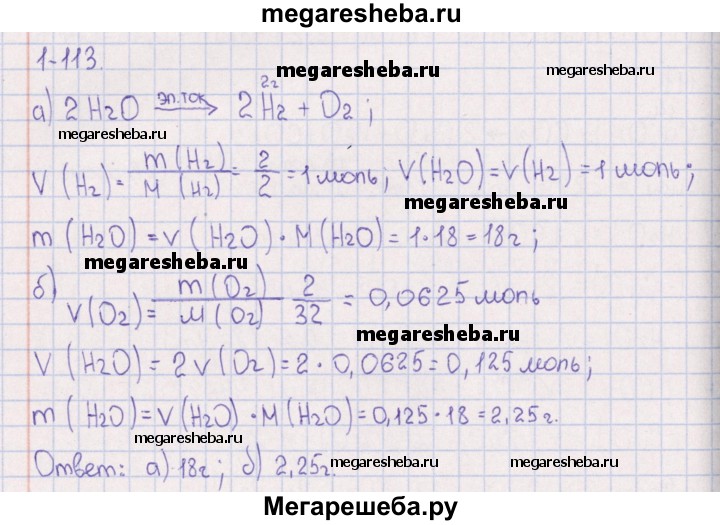 megaresheba.ru
1-113.
megaresheba.ru
megaresheba.ru
2г
а) 2H2O эл.ток → 2H2 + O2;
megaresheba.ru
ν (H2) = m (H2) / M (H2) = 2/2 = 1 моль; ν(H2O) = ν(H2) = 1 моль;
megaresheba.ru
m (H2O) = ν (H2O) · M(H2O) = 1·18 = 18г;
megaresheba.ru
б)
ν(O2) = m (O2) / M (O2) 2/32 = 0,0625 моль
megaresheba.ru
ν (H2O) = 2ν(O2) = 2 · 0,0625 = 0,125 моль;
m (H2O) = ν(H2O) · M(H2O) = 0,125·18 = 2,25г.
megaresheba.ru
Ответ: а) 18г; б) 2,25г.
megaresheba.ru
megaresheba.ru
Мегарешеба.ру